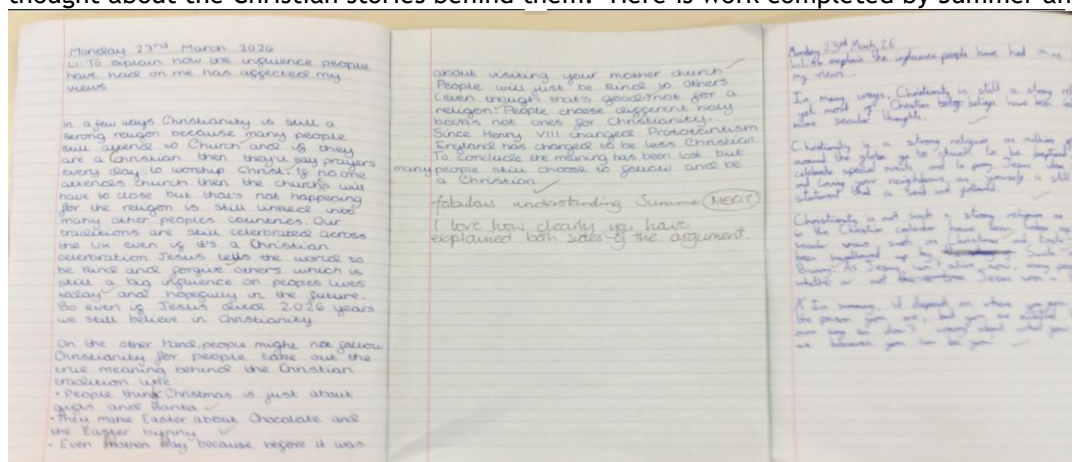 thought about the Christian stories behind them. Here is work completed by Summer an
Monday 23rd March 2026
LI: To explain how the influence people
have had on me has affected my
views
In a few ways Christianity is still a
strong religon because many people
still attend to Church and if they
are a christian then they'll say prayers
every day to worship Christ. If no one
attends church then the churchs will
have to close but that's not happening
for the religon is still linked into
many other peoples countries. Our
traditions are still celerbrated across
the UK even if it's a Christian
celerbration. Jesus tells the world to
be kind and forgive others which is
still a big influence on peoples lives
today and hopefully in the future.
So even if Jesus died 2,026 years
we still believe in Christianity.
On the other hand, people might not follow
Christianity for people take out the
true meaning behind the Christian
tradition like
• People think Christmas is just about
gifts and Santa
• They make Easter about Chocolate and
the Easter bunny
• Even Mothers Day because before it was
about visiting your mother church
People will just be kind to others
(even though that's good) not for a
religon. People choose different holy
books not ones for Christianity.
Since Henry VIII changed Prototantism
England has changed to be less Christian
To conclude the meaning has been lost but
many people still choose to follow and be
a Christian
fabulous understanding Summer MERIT
I love how clearly you have
explained both sides of the argument.
Monday 23rd March 26
L.I. to explain the influence people have had on me
my views.
In many ways, Christianity is still a strong
yet most of Christian beliefs have been
more secular thoughts.
Christianity is a strong religion as
around the globe go to church to be baptised
celebrate special events and to pray. Jesus
and loving your neighbours as yourself is still
statement that is said and followed.
Christianity is not such a strong religion as
in the Christian calendar have been taken
secular views, such as Christmas and Easter
been swallowed up by Santa
Bunny. As Jesus isn't alive now, many
whether or not Jesus was a
In summary, it depends on where you
the person you are, but you are entitled
own say so don't worry about what you
are because you can be you!